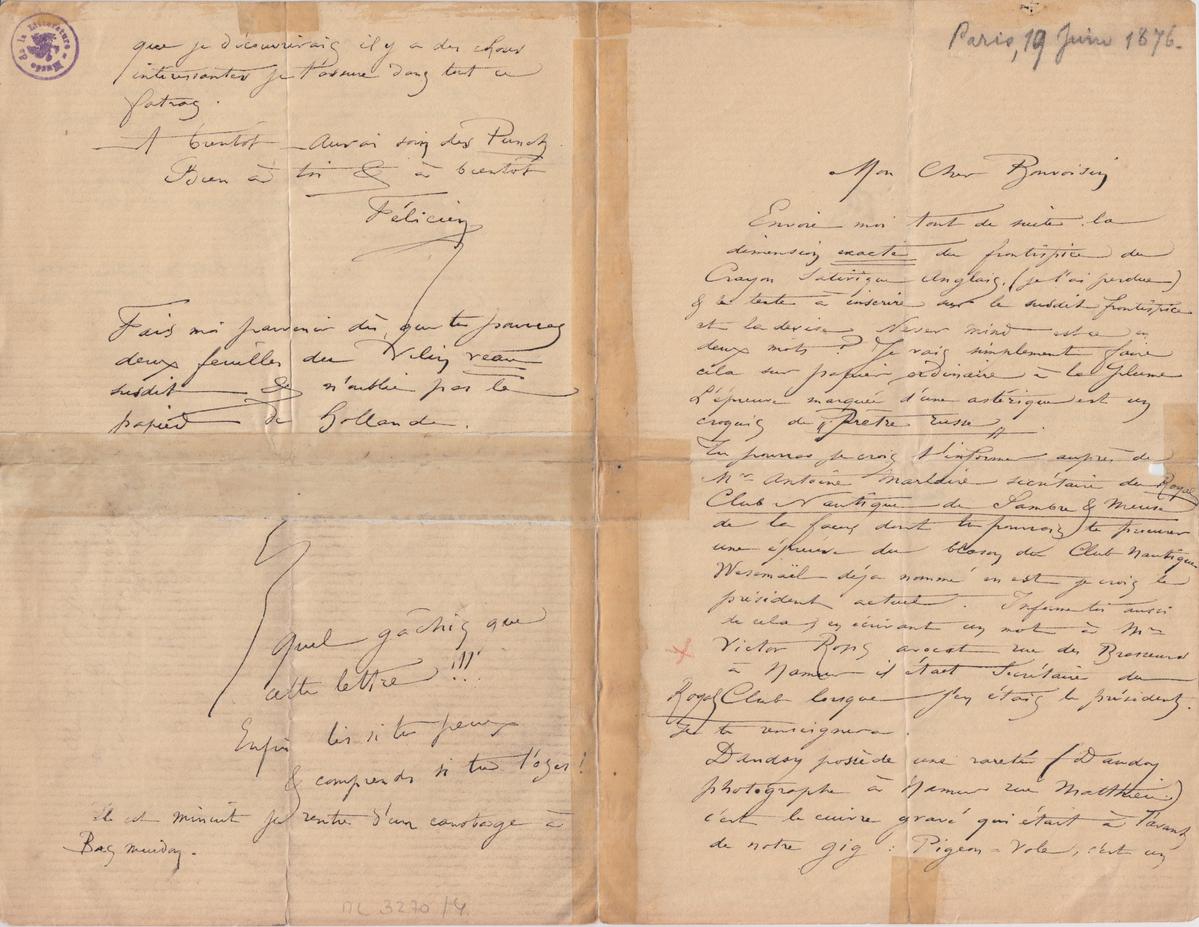 Paris, 19 Juin 1876.
Mon Cher Bonvoisin
Envoie moi tout de suite la
dimension exacte du frontispice du
Crayon Satirique Anglais, (je l'ai perdue)
& le texte à inscrire sur le susdit frontispice
et la devise Never mind est ce en
deux mots ? Je vais simplement faire
cela sur papier ordinaire à la plume
L'épreuve marquée d'une astérique est un
croquis de "Prètre russe"
Tu pourras je crois t'informer auprès de
Mr Antoine Marlaire secrétaire du Royal
Club Nautique de Sambre & Meuse
de la façon dont tu pourrais te procurer
une épreuve du blason du Club Nautique
Wesmaël déjà nommé en est je crois le
président actuel. Informe toi aussi
de cela, en écrivant un mot à Mr
Victor Rops avocat rue des Brasseurs
à Namur il était Secrétaire du
Royal Club lorsque j'en étais le président.
Il te renseignera.
Dandoy possède une rareté (Dandoy
photographe à Namur rue Matthieu)
c'est le cuivre gravé qui était à l'avant
de notre gig : Pigeon-Vole, c'est un
que je découvrirais il y a des choses
intéressantes je t'assure dans tout ce
fatras.
A bientôt – aurai soin des Punch.
Bien à toi & à bientôt
Félicien
Fais moi parvenir dès que tu pourras
deux feuilles du Vélin veau
susdit & n'oublie pas le
papier de Hollande.
Quel gâchis que
cette lettre !!!
Enfin lis si tu peux
& comprends si tu l'oses !
il est minuit je rentre d'un canotage à
Bas meudon.
Musée de la Littérature
ML 3270/4